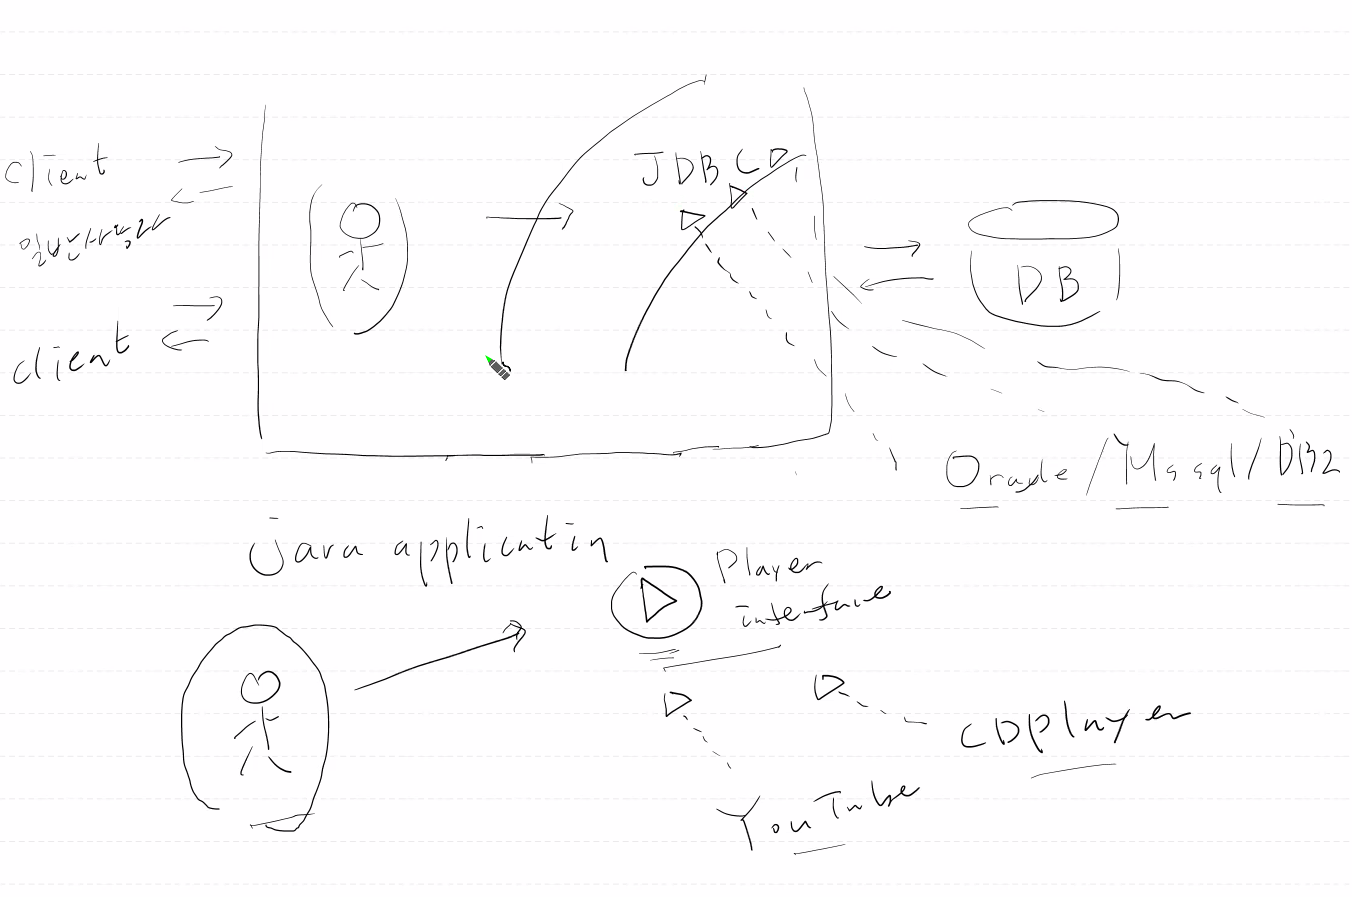 client
일반사용자
client
JDBC
DB
Oracle/Mssql/DB2
java applicatin
Player
interface
CDplayer
YouTube